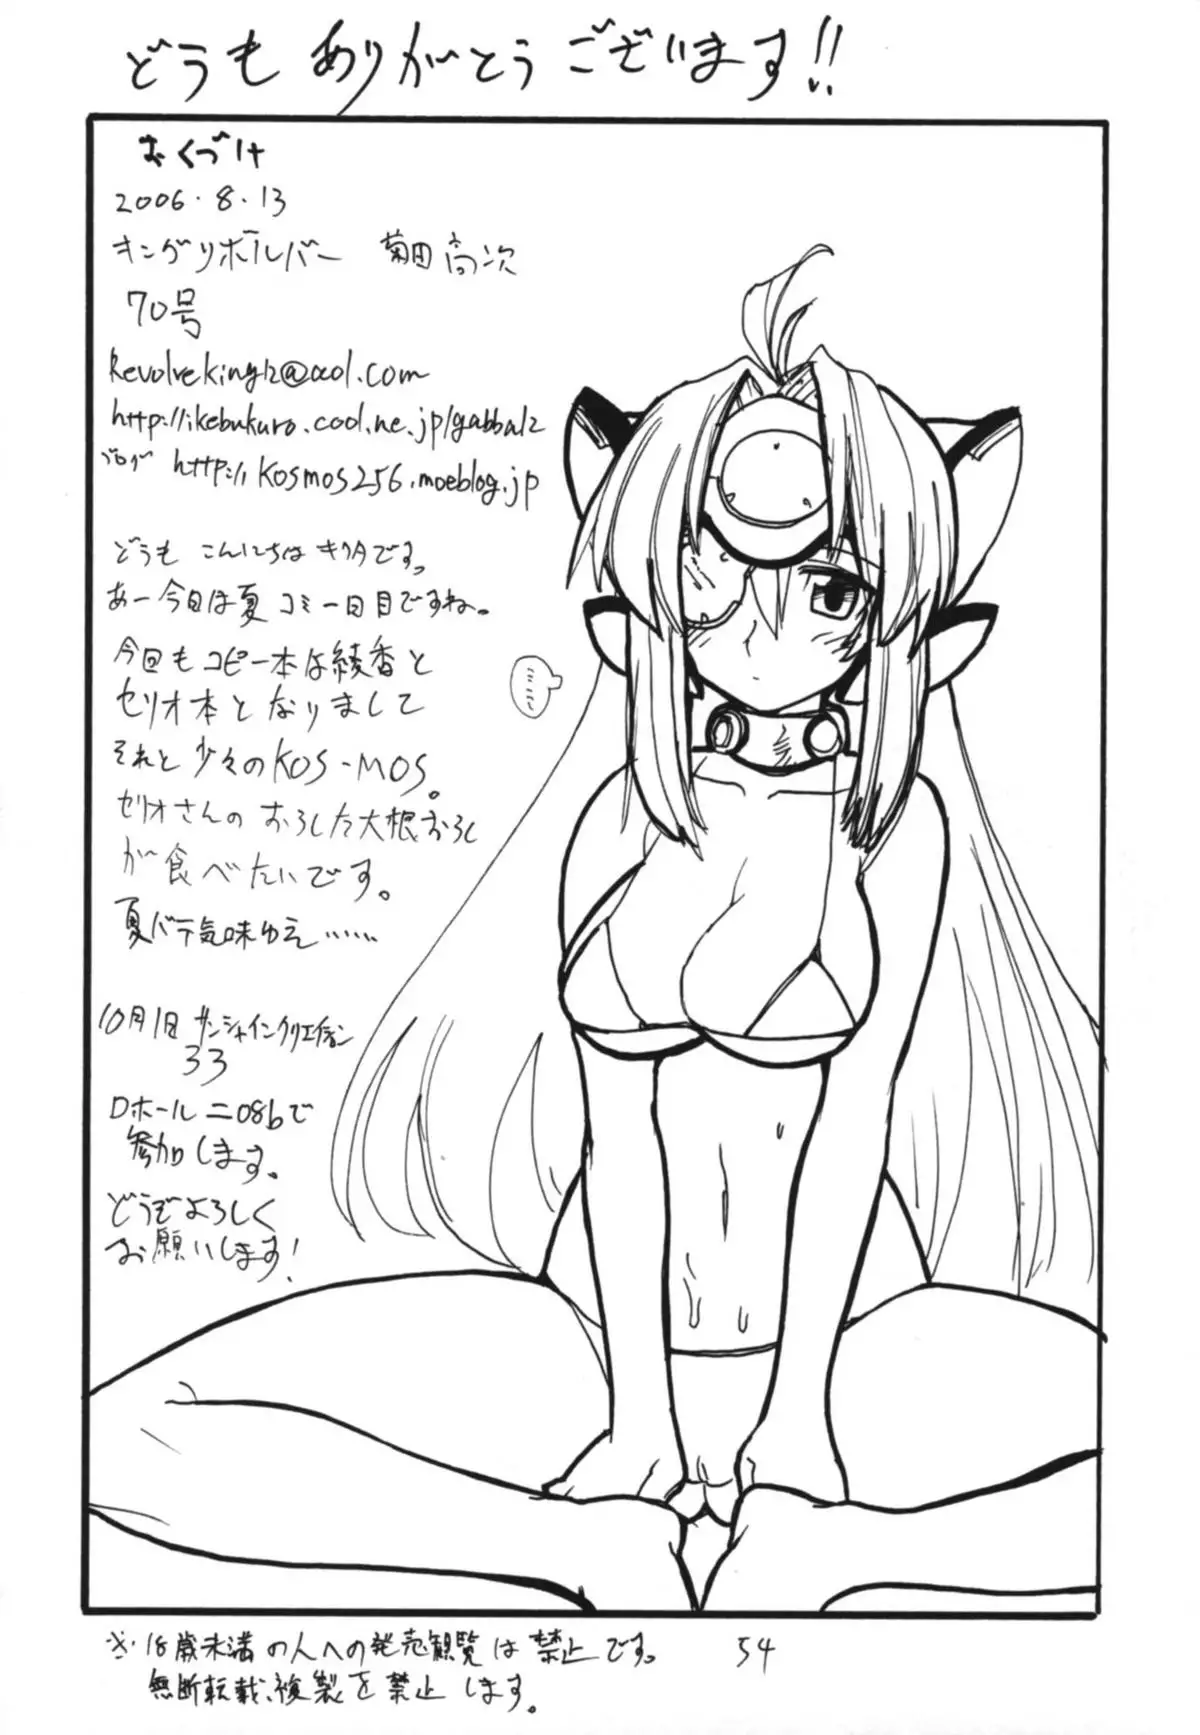 どうも ありがとうございます!!
おくづけ
2006.8.13
キングリボルバー 菊田高次
70号
Revolveking12@aol.com
http://ikebukuro.cool.ne.jp/gabba12
ブログ http://kosmos256.moeblog.jp
どうも こんにちは キクタです。
あー今日は夏コミ一日目ですね。
今回もコピー本は綾香と
セリオ本となりまして
それと少々のKOS-MOS。
セリオさんの おろした大根おろし
が食べたいです。
夏バテ気味ゆえ……
10月1日 サンシャインクリエイション
33
Dホール ニ08bで
参加します。
どうぞよろしく
お願いします!
※・18歳未満の人への発売観覧は禁止です。
無断転載、複製を禁止します。
54